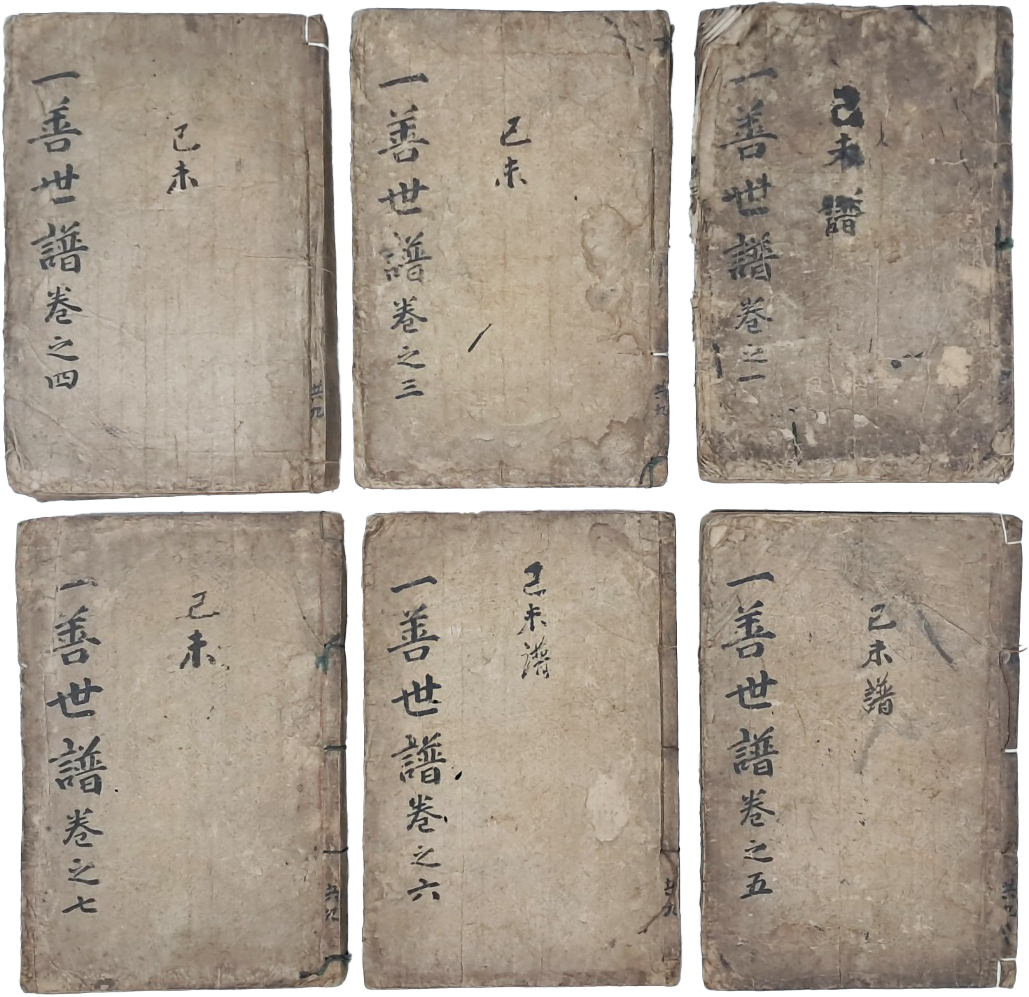 己未譜
一善世譜卷之一
共九
己未
一善世譜卷之三
共九
己未
一善世譜卷之四
共九
己未譜
一善世譜卷之五
共九
己未譜
一善世譜卷之六
共九
己未
一善世譜卷之七